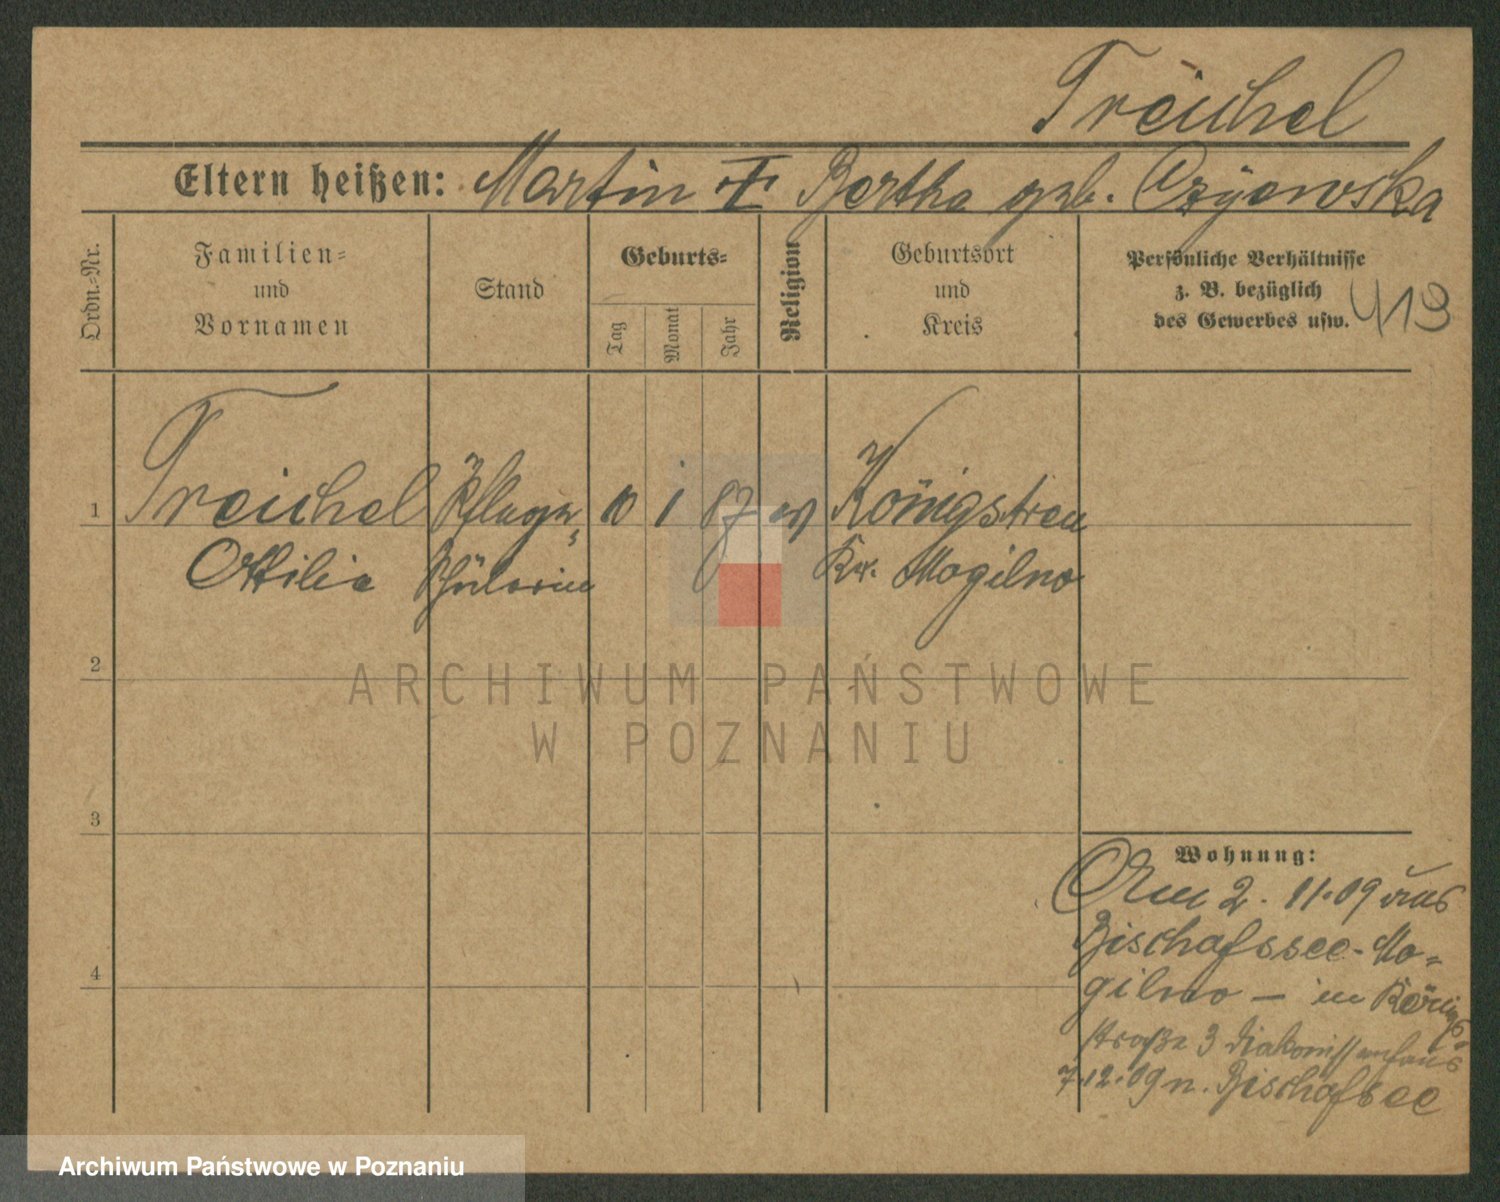 Treichel
Eltern heißen: Martin † Bertha geb. Czyewska
Ordn.-Nr.
Familien-
und
Vornamen
Stand
Geburts-
Tag
Monat
Jahr
Religion
Geburtsort
und
Kreis
Persönliche Verhältnisse
z. B. bezüglich
des Gewerbes usw.
413
1
Treichel Pflege- 10 1 87 ev Königstreu
Ottilie Schülerin Kr. Mogilno
2
ARCHIWUM PAŃSTWOWE
W POZNANIU
3
Wohnung:
2. 11.09 aus
Bischofssee-Mo-
4
gilno – in Königs-
straße 3 Diakonissenhaus
7.12.09 n. Bischofsee
Archiwum Państwowe w Poznaniu